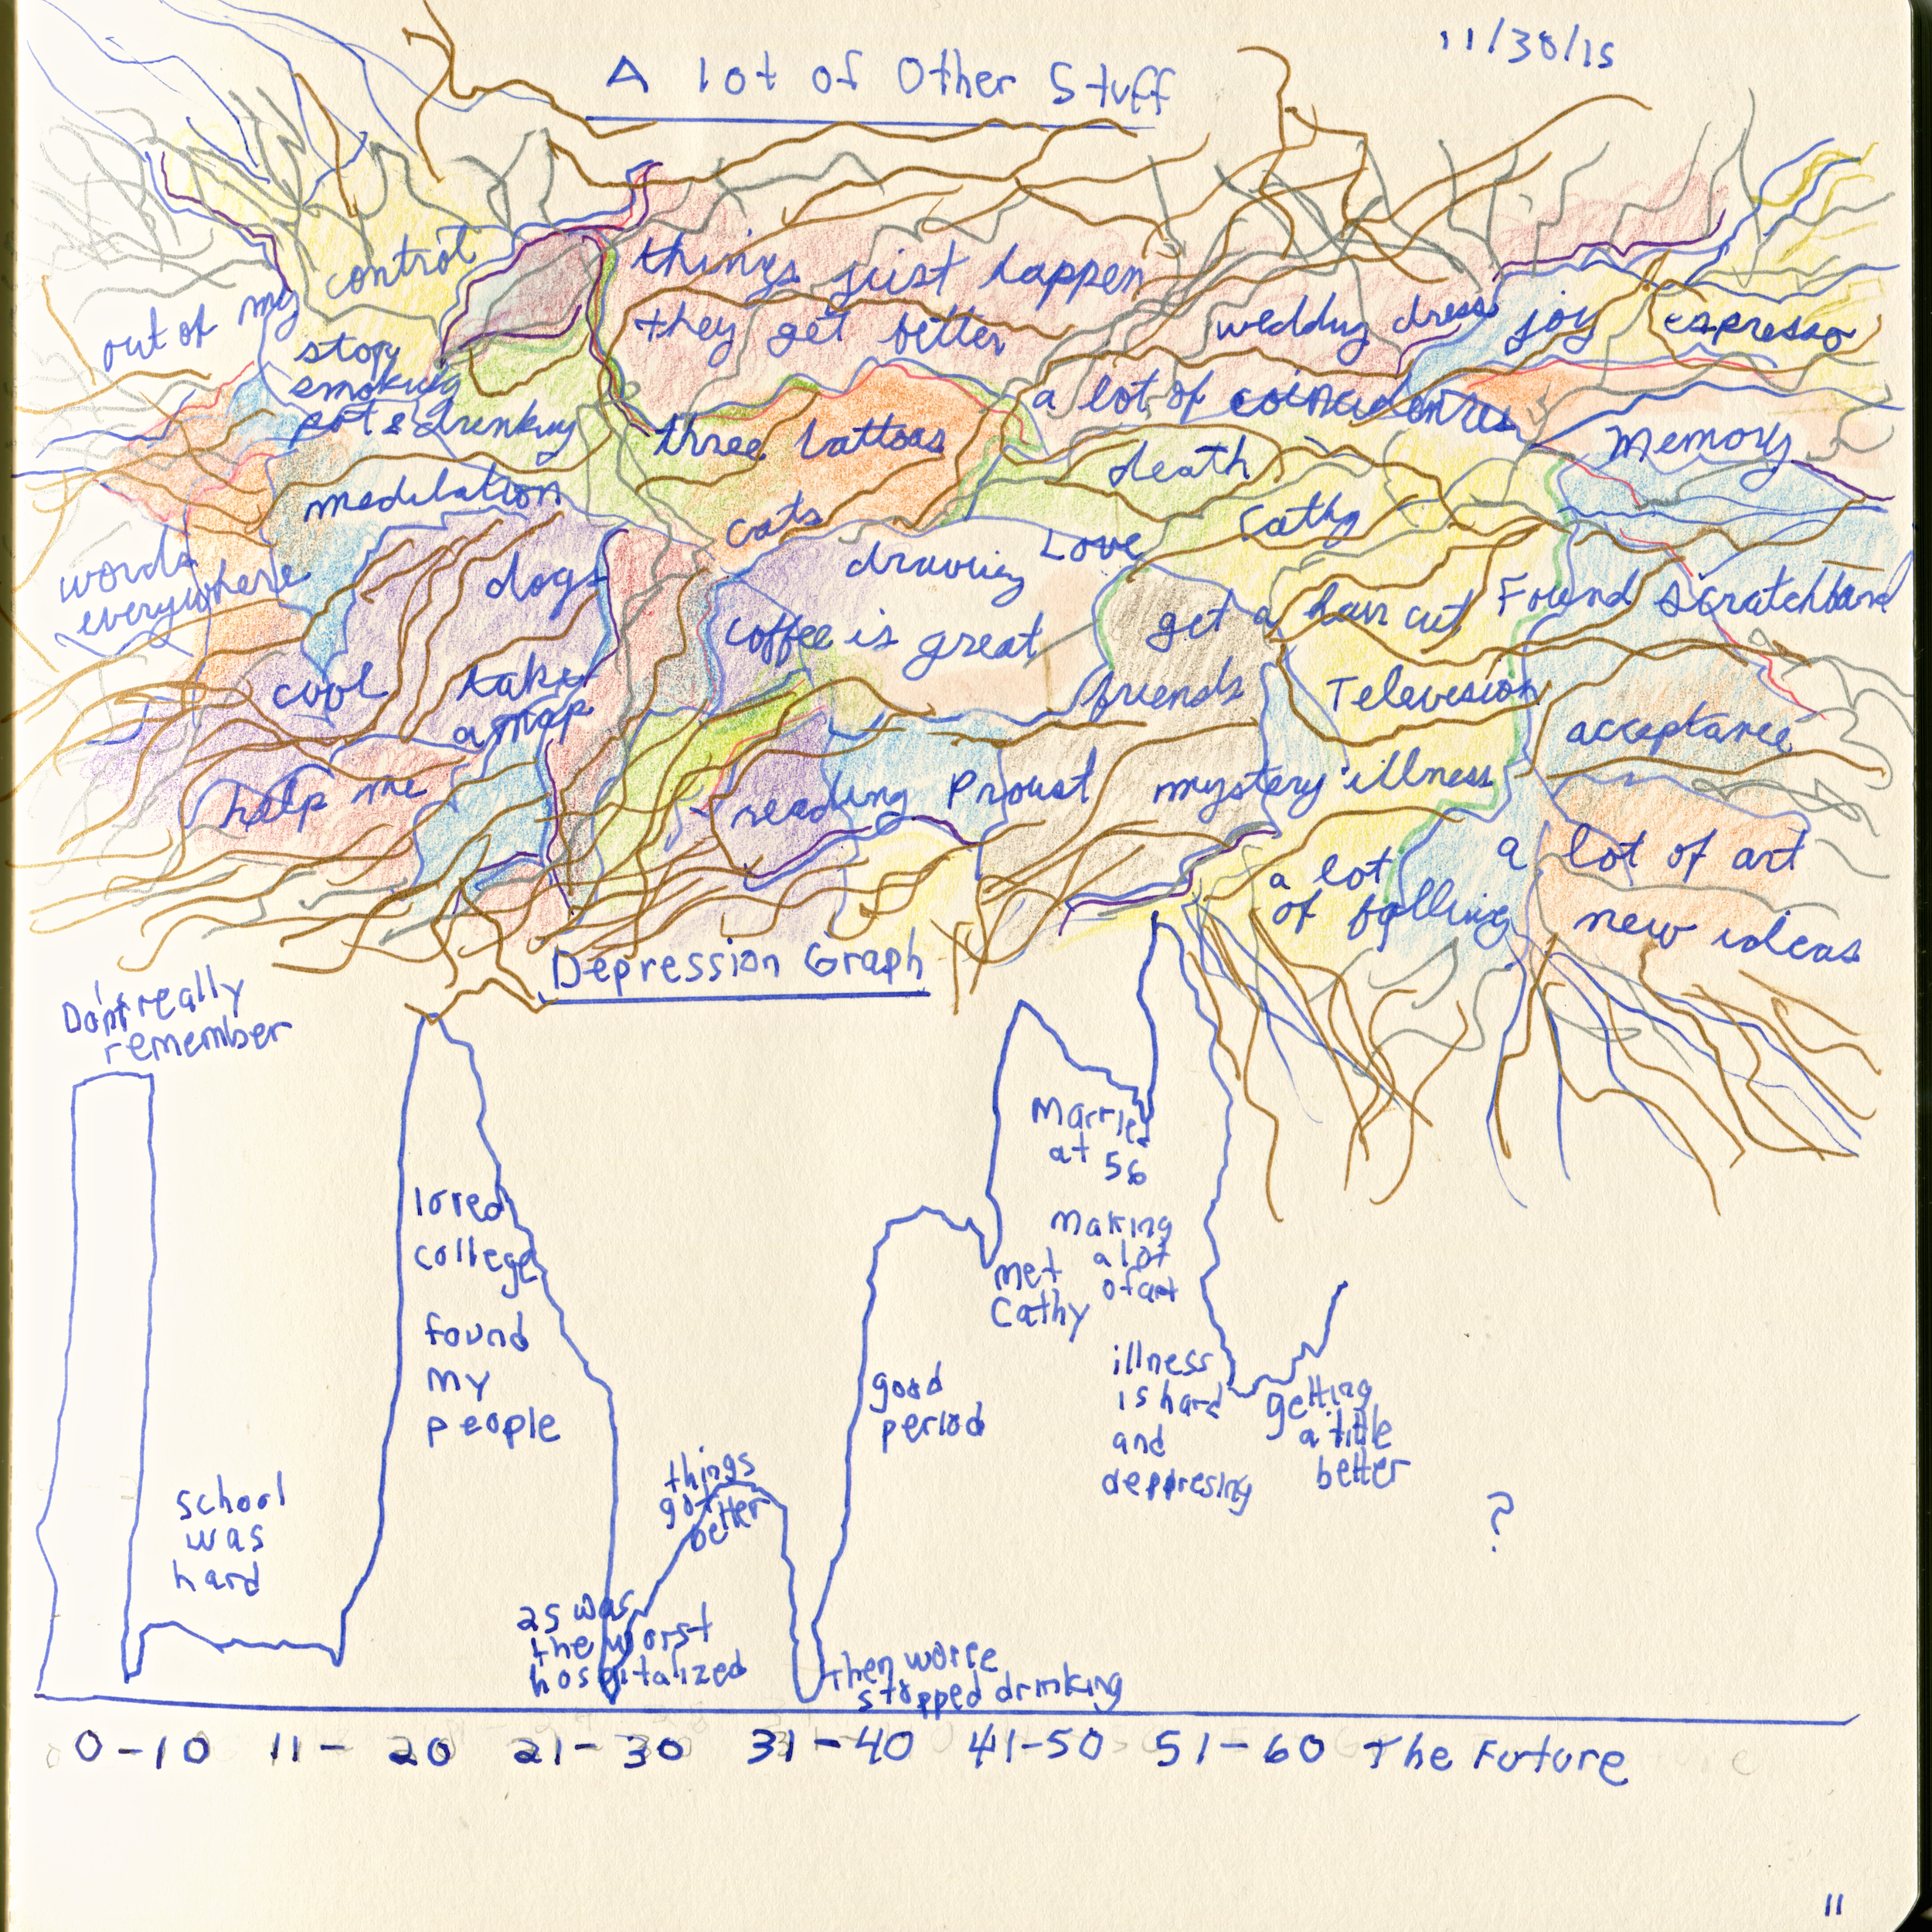 11/30/15
A lot of Other Stuff
out of my control
things just happen
they get better
wedding dress
joy
espresso
stop
smoking
pot & drinking
three tattoos
a lot of coincidences
death
Memory
medulation
cats
Cathy
words
everywhere
dogs
drawing
Love
coffee is great
get a hair cut
Found scratchband
cool
take
a map
friends
Television
acceptance
help me
reading Proust
mystery illness
a lot
of falling
a lot of art
new ideas
Depression Graph
Don't really
remember
Married
at 56
loved
college
making
a lot
of art
met
Cathy
found
my
people
good
period
illness
is hard
and
deppresing
getting
a little
better
school
was
hard
things
got better
?
25 was
the worst
hospitalized
then worce
stopped drinking
0-10 11-20 21-30 31-40 41-50 51-60 The Future
11